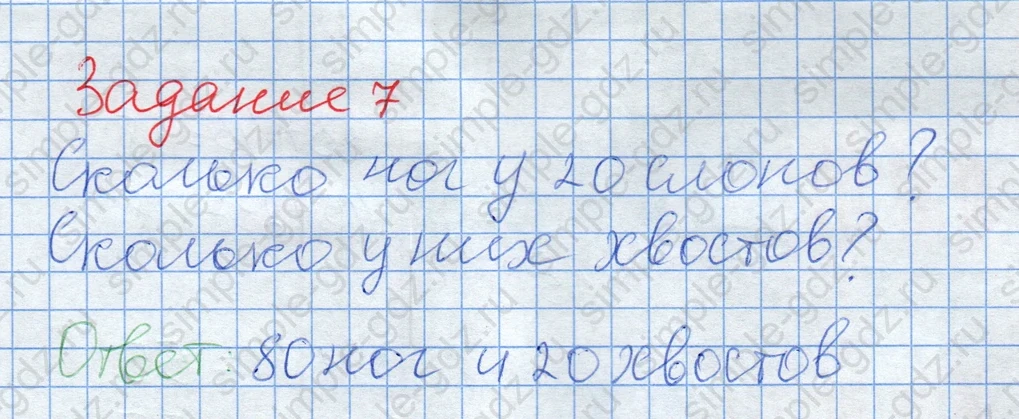 Задание 7
Сколько ног у 20 слонов?
Сколько у них хвостов?
Ответ: 80 ног и 20 хвостов